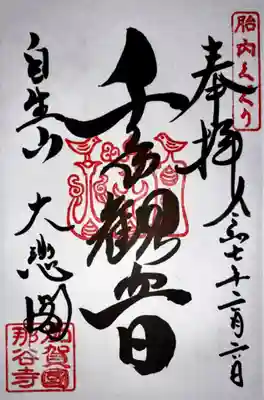 胎内くぐり
奉拝
令和七十二月六日
千手観音
自生山
大悲閣
加賀國
那谷寺